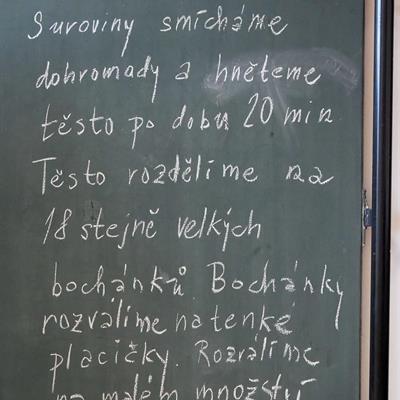 Suroviny smícháme
dohromady a hněteme
těsto po dobu 20 min
Těsto rozdělíme na
18 stejně velkých
bochánků. Bochánky
rozválíme na tenké
placičky. Rozválíme
na malém množství